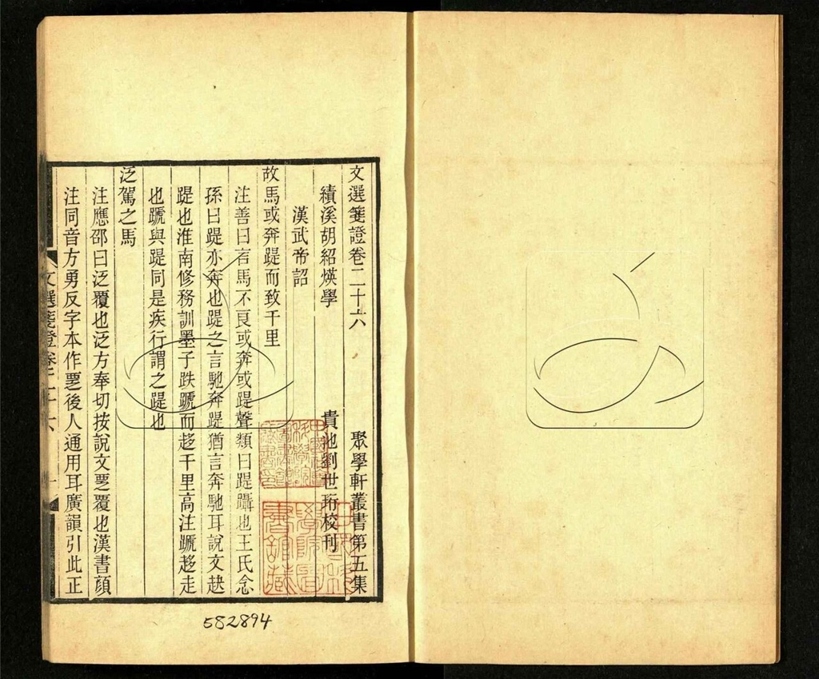 文選箋證卷二十六　聚學軒叢書第五集
績溪胡紹煐學　貴池劉世珩校刊
漢武帝詔
故馬或奔踶而致千里
注善曰言馬不良或奔或踶聲類曰踶躡也王氏念
孫曰踶亦奔也踶之言馳奔踶猶言奔馳耳說文赽
踶也淮南修務訓墨子跌蹏而趍千里高注蹏趍走
也蹏與踶同是疾行謂之踶也
泛駕之馬
注應邵曰泛覆也泛方奉切按說文覂覆也漢書顏
注同音方勇反字本作覂後人通用耳廣韻引此正
文選箋證卷二十六
一
582894